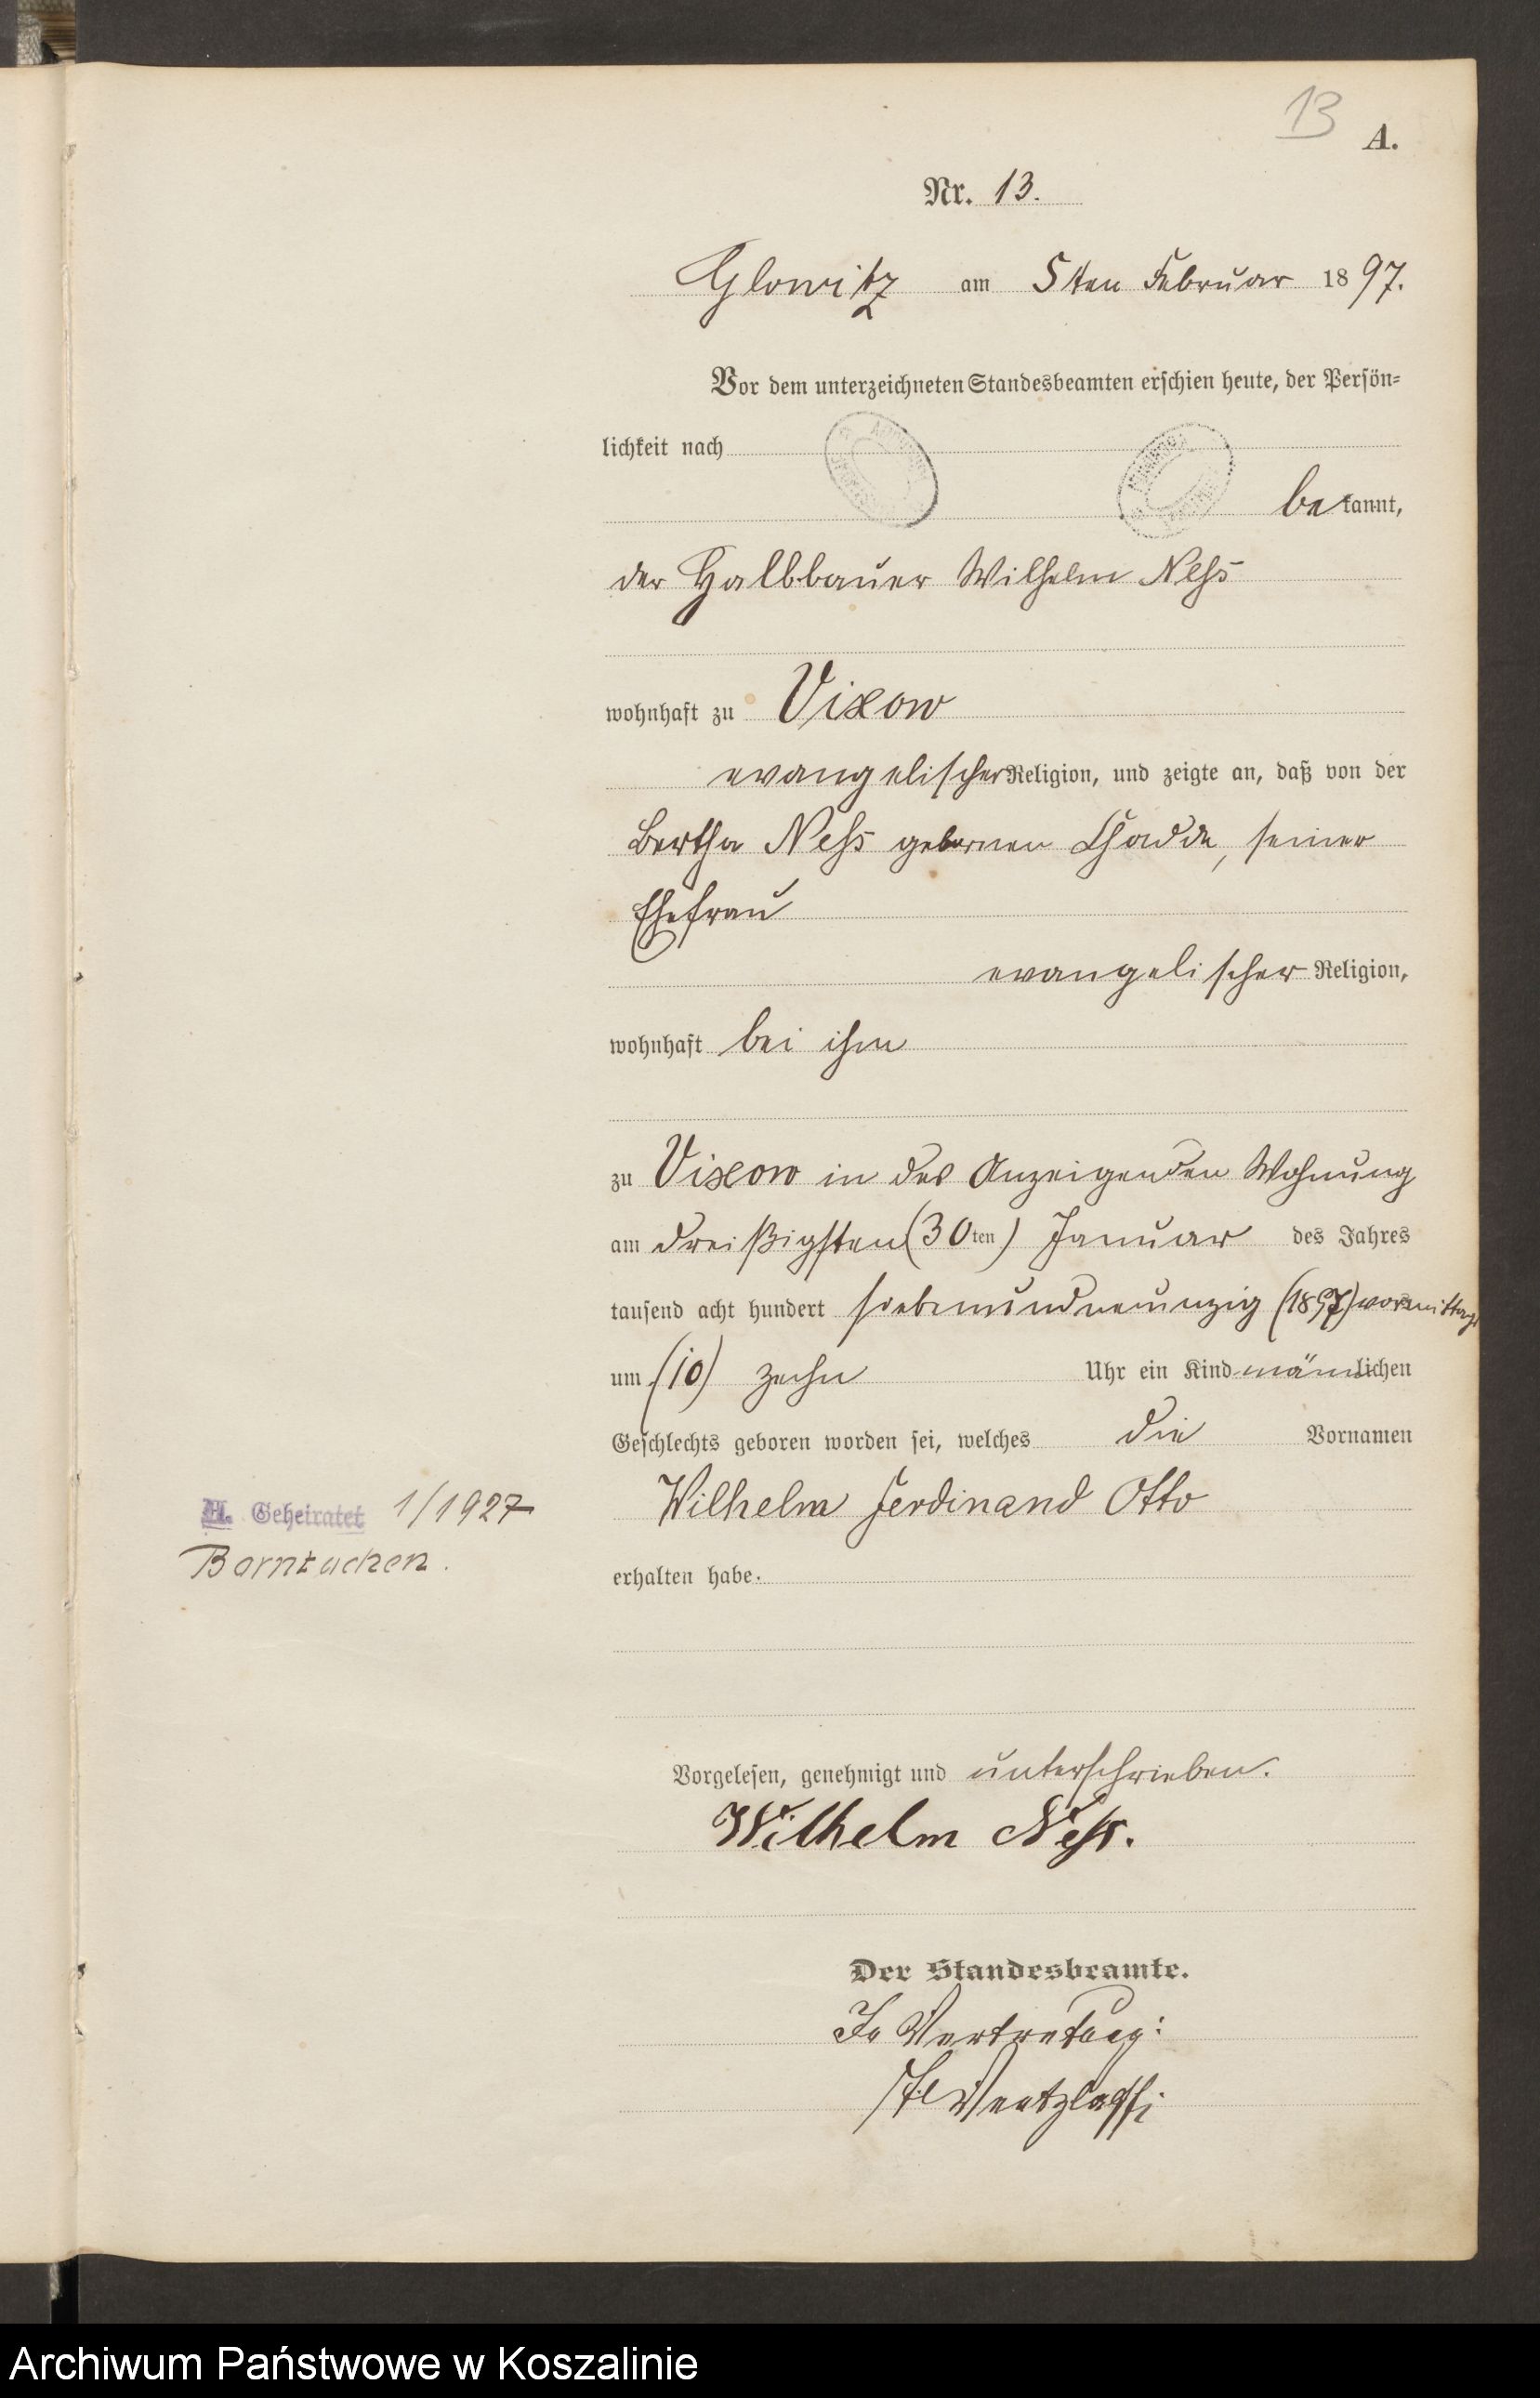 13
A.
Nr. 13.
Glowitz am 5ten Februar 1897.
Vor dem unterzeichneten Standesbeamten erschien heute, der Persön-
lichkeit nach
bekannt,
der Halbbauer Wilhelm Neß
wohnhaft zu Vixow
evangelischer Religion, und zeigte an, daß von der
Bertha Neß gebornen Schadde, seiner
Ehefrau
evangelischer Religion,
wohnhaft bei ihm
zu Vixow in des Anzeigenden Wohnung
am dreißigsten (30ten) Januar des Jahres
tausend acht hundert siebenundneunzig (1897) vormittags
um (10) zehn Uhr ein Kind männlichen
Geschlechts geboren worden sei, welches die Vornamen
H. Geheiratet 1/1927
Borntuchen.
Wilhelm Ferdinand Otto
erhalten habe.
Vorgelesen, genehmigt und unterschrieben.
Wilhelm Neß.
Der Standesbeamte.
In Vertretung:
Archiwum Państwowe w Koszalinie